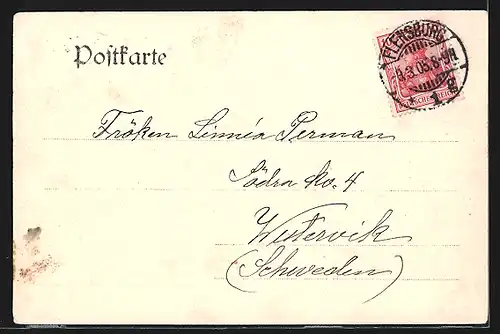 Postkarte
FLENSBURG
3.03.8-9N
Fröken Linnéa Perman
Södra kv. 4
Westervik
(Schweden)